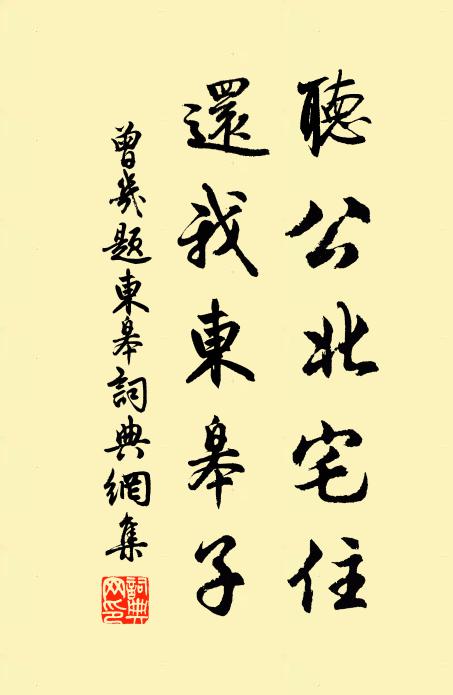 聽公北宅住
還我東皋子
曾幾題東皋詞典網集
詞典網印